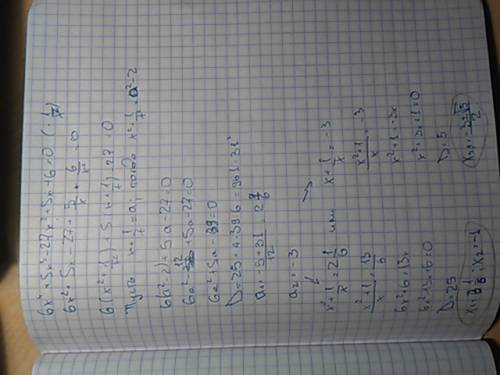 6x⁴ + 5x³ - 27x² + 5x + 6 = 0
6x² + 5x - 27 + 5/x + 6/x² = 0
6(x² + 1/x²) + 5(x + 1/x) - 27 = 0
Пусть x + 1/x = a, тогда x² + 1/x² = a² - 2
6(a² - 2) + 5a - 27 = 0
6a² - 12 + 5a - 27 = 0
6a² + 5a - 39 = 0
D = 25 + 4·39·6 = 961 = 31²
a₁ = -5+31/12 = 2 1/6
a₂ = -3
x + 1/x = 2 1/6 или x + 1/x = -3
x²+1/x = 13/6 x²+1/x = -3
6x² + 6 = 13x x² + 1 = -3x
6x² - 13x + 6 = 0 x² + 3x + 1 = 0
D = 25 D = 5